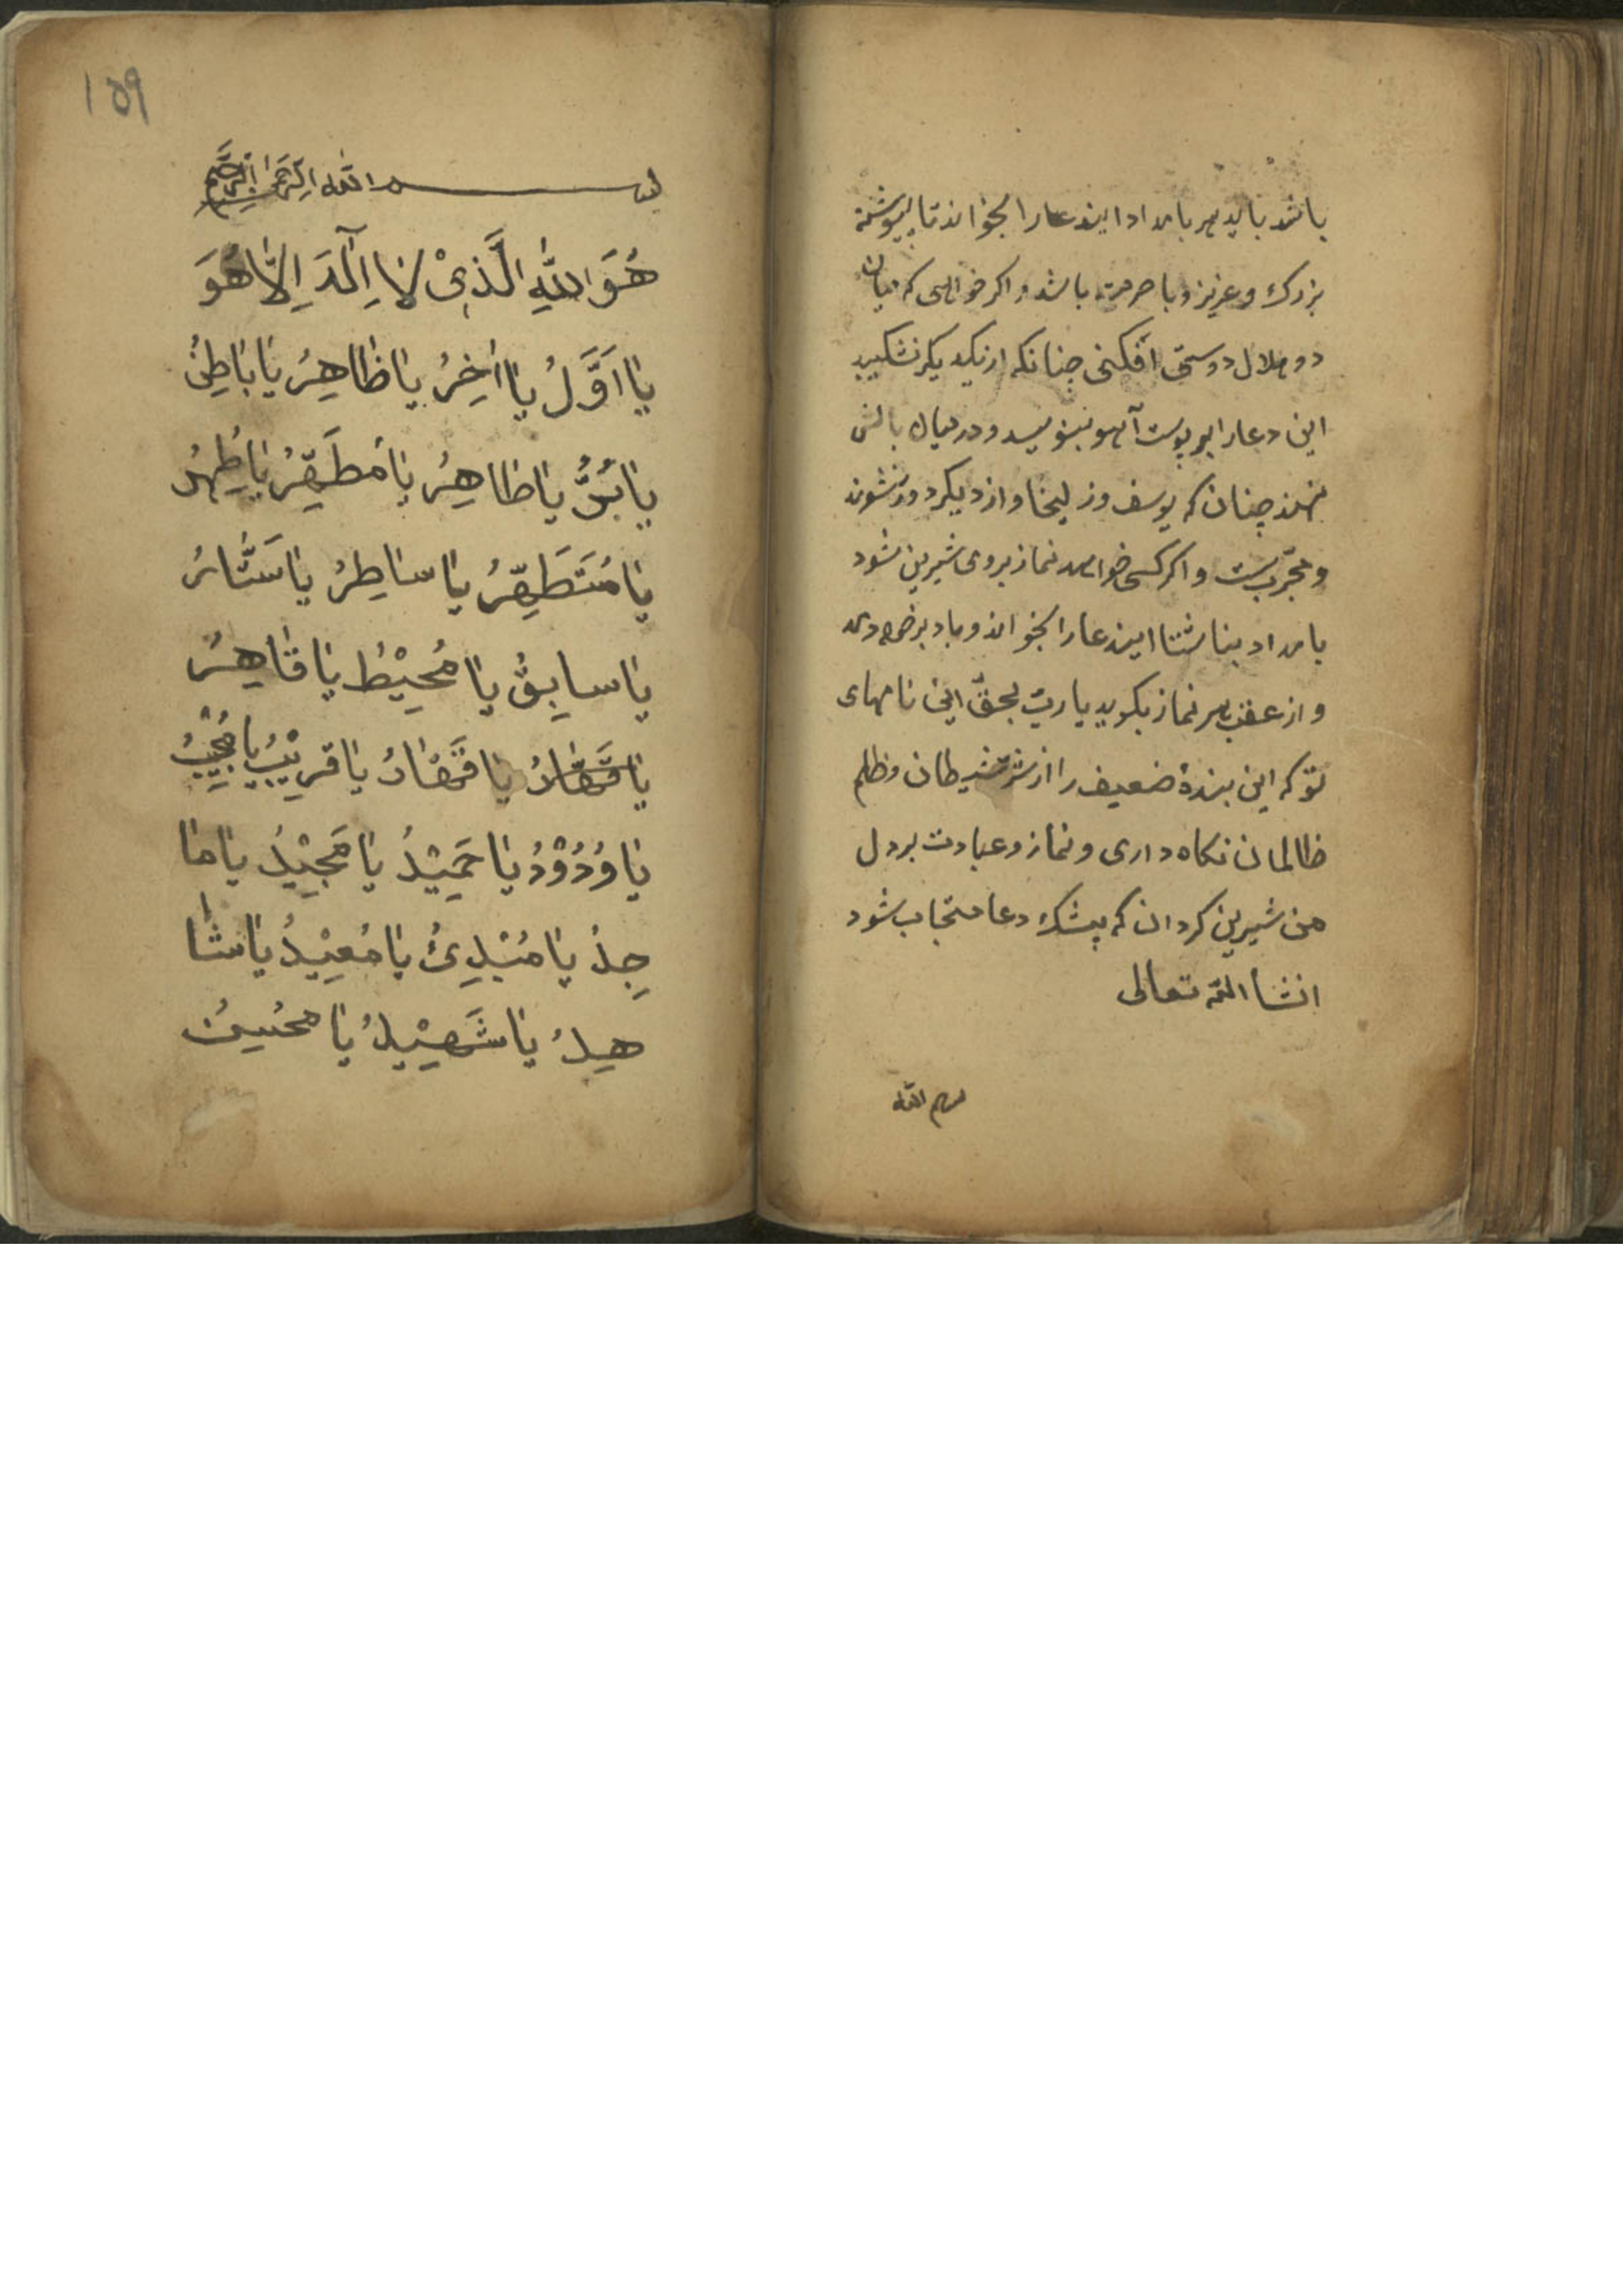 باشد باید هر بامداد این دعا را بخواند تا پیوسته
بزرك و عزیز و با حرمت باشد و اکر خواهی که میان
دو حلال دوستی افکنی چنانکه از یکدیکر نشکیبد
این دعا را بر پوست آهو بنویسد و در میان بالش
نهند چنان که یوسف و زلیخا و از دیکر دور نشوند
و مجرّبست و اکر کسی خواهد نماز بروی شیرین شود
بامداد بناشتا این دعا را بخواند و باد بر خود دمد
و از عقب هر نماز بکوید یا ربّ بحقّ این نامهای
تو که این بندهٔ ضعیف را از شر شیطان و ظلم
ظالمان نکاه داری و نماز و عبادت بر دل
من شیرین کردان که بیشك دعا مستجاب شود
انشا الله تعالی
بسم الله
۱۵۹
بسم الله الرحمن الرحیم
هُوَ اللهِ الَّذِیْ لا اِلٰهَ اِلاّ هُوَ
یا اَوَّلُ یا اٰخِرُ یا ظاهِرُ یا باطِنُ
یا بُرُّ یا طاهِرُ یا مُطَهِّرُ یا طُهرُ
یا مُتَطَهِّرُ یا ساطِرُ یا سَتّارُ
یا سابِقُ یا مُحِیْطُ یا قاهِرُ
یا قَهّارُ یا قَهّارُ یا قَرِیْبُ یا مُجِیْبُ
یا وَدُوْدُ یا حَمِیْدُ یا مَجِیْدُ یا ما
جِدُ یا مُبْدِئُ یا مُعِیْدُ یا شا
هِدُ یا شَهِیْدُ یا مُحسِنُ